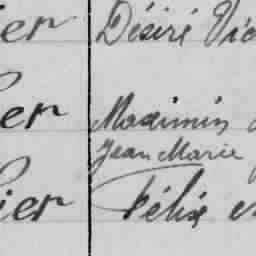 ier Désiré Vic
ier Maximin
Jean Marie
lier Félix